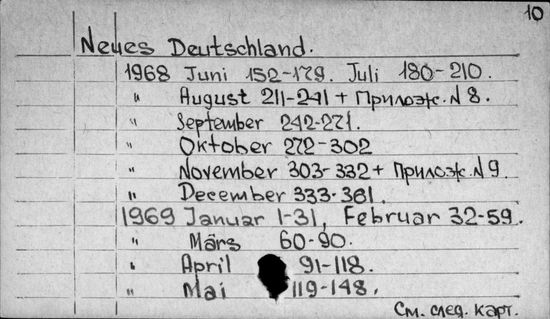 10
Neues Deutschland.
1968 Juni 152-179. Juli 180-210.
" August 211-241 + Прилож. N 8.
" September 242-271.
" Oktober 272-302
" November 303-332 + Прилож. N 9.
" December 333-361.
1969 Januar 1-31, Februar 32-59.
" Märs 60-90.
" April 91-118.
" Mai 119-148.
См. след. карт.